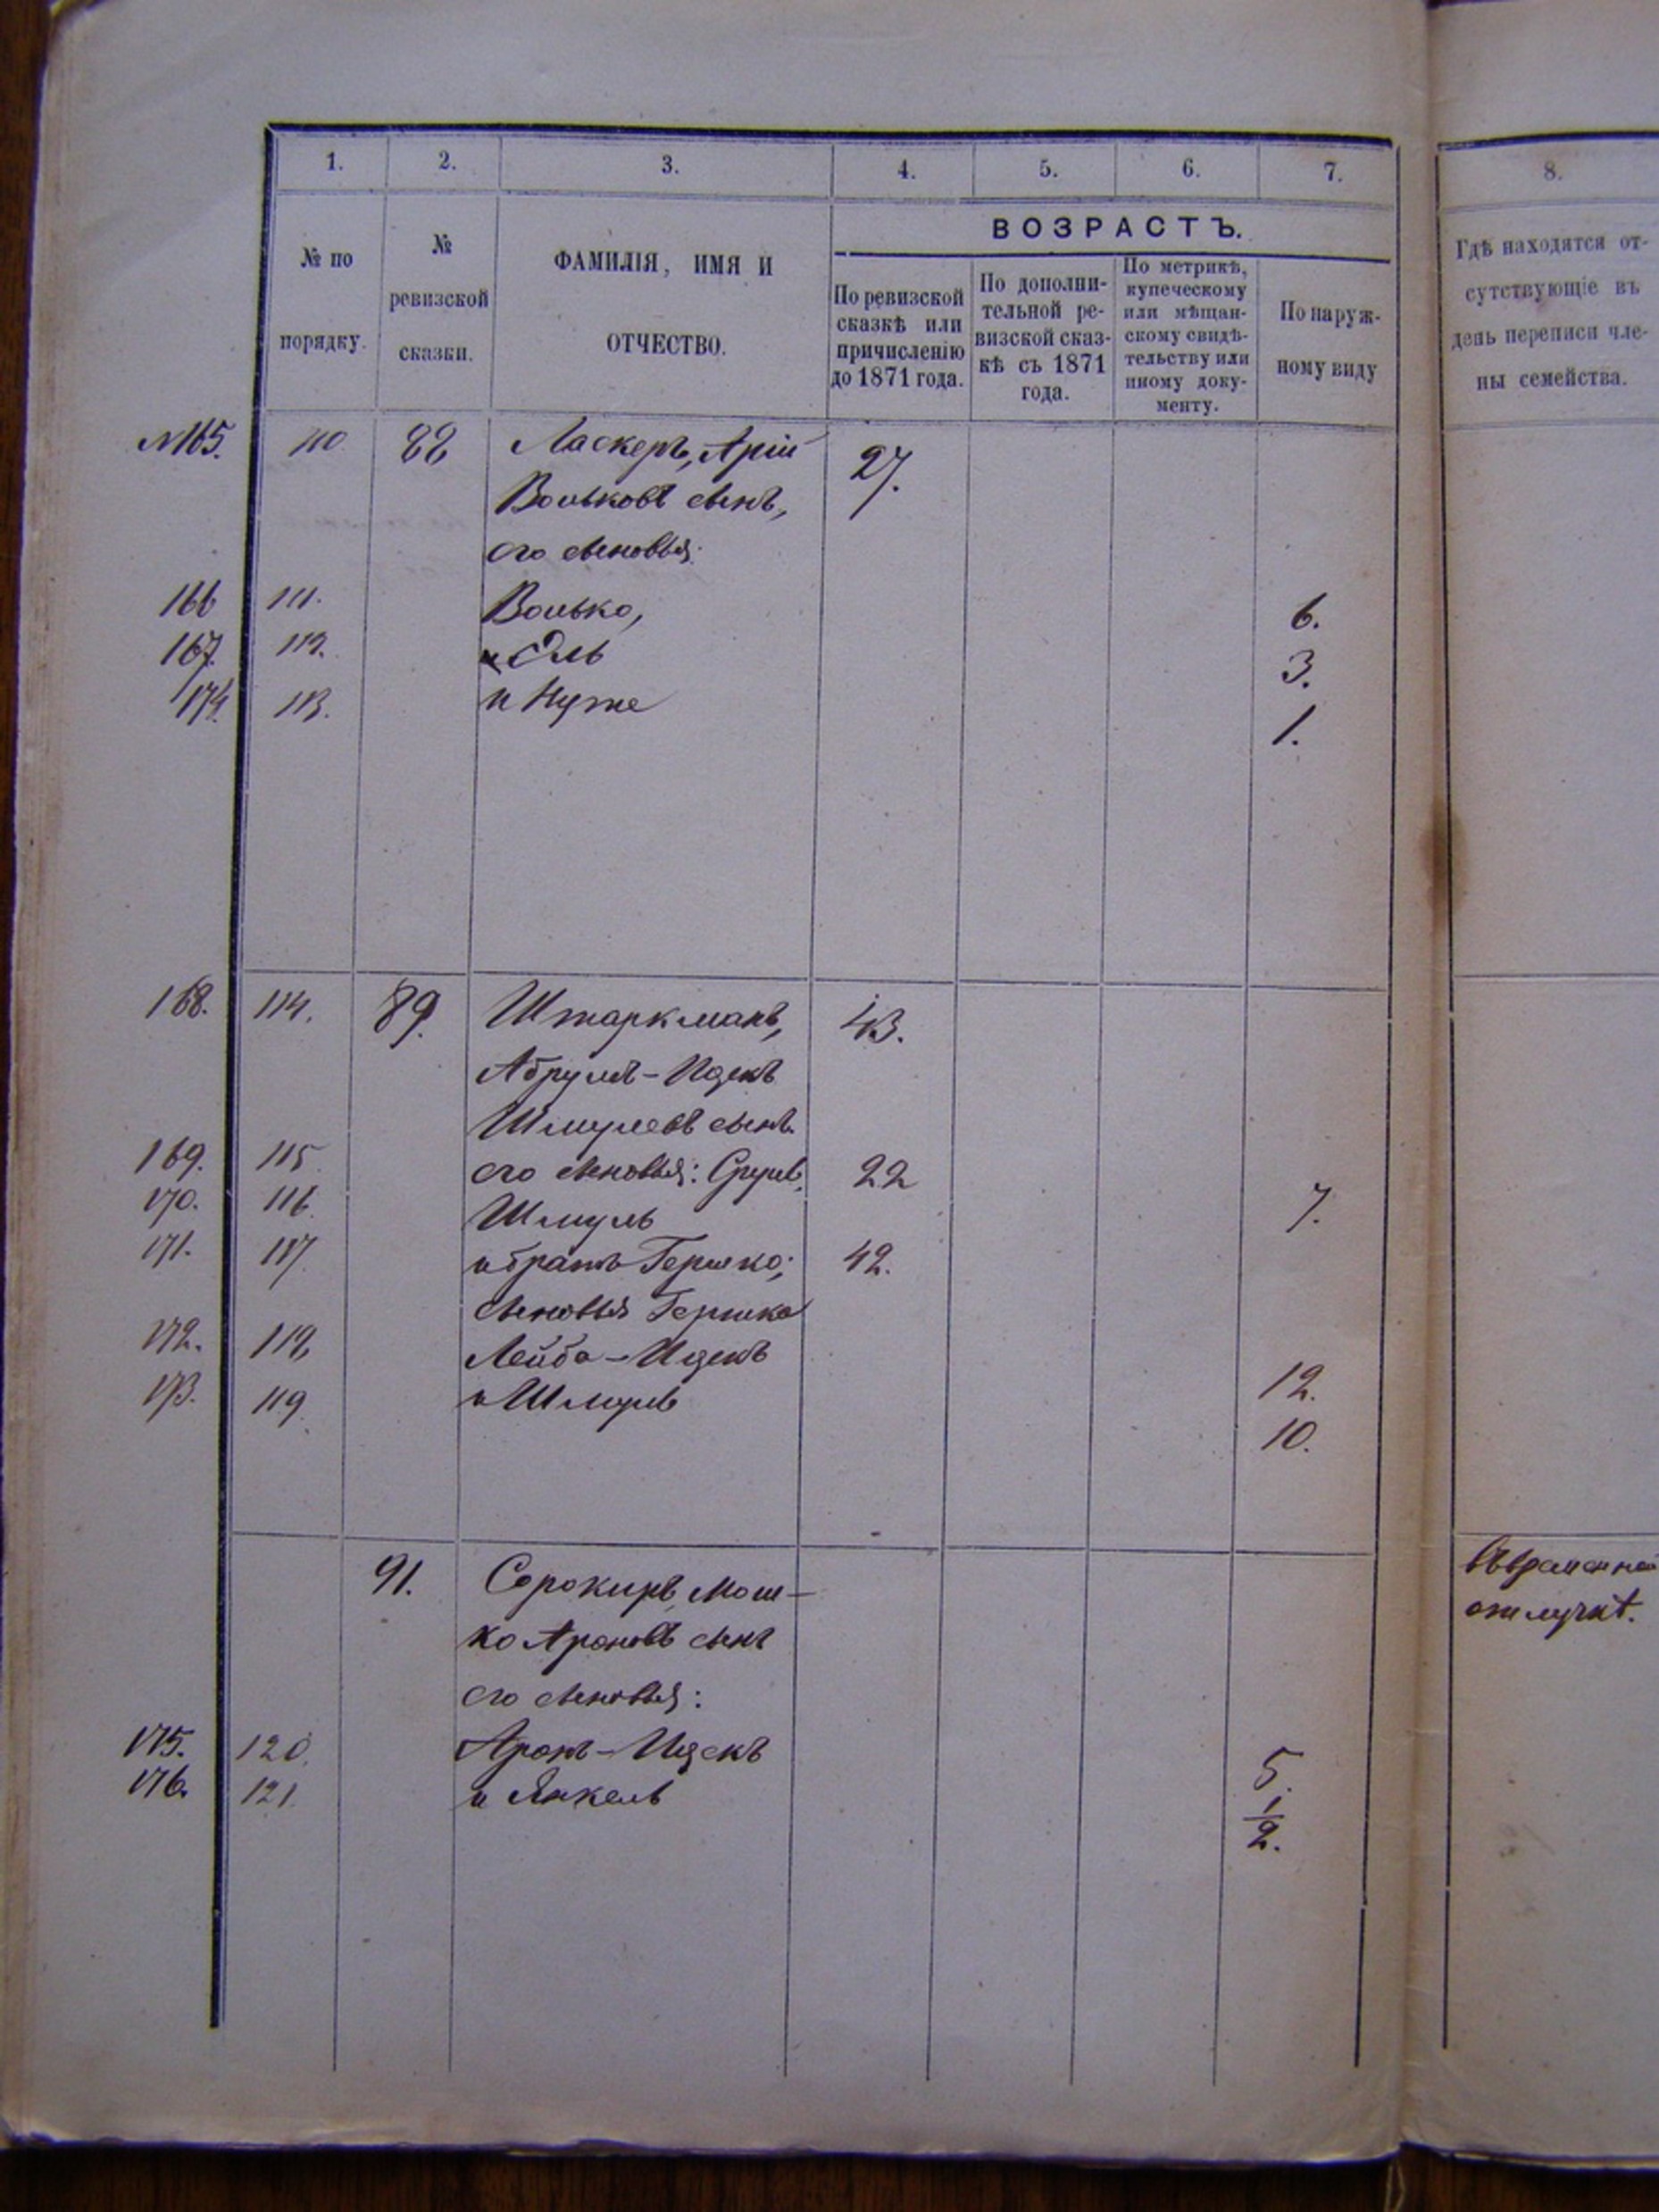 1. 2. 3. 4. 5. 6. 7. 8.
ВОЗРАСТЪ.
№ по
порядку.
№
ревизской
сказки.
ФАМИЛІЯ, ИМЯ И
ОТЧЕСТВО.
По ревизской
сказкѣ или
причисленію
до 1871 года.
По дополни-
тельной ре-
визской сказ-
кѣ съ 1871
года.
По метрикѣ,
купеческому
или мѣщан-
скому свидѣ-
тельству или
иному доку-
менту.
По наруж-
ному виду
Гдѣ находятся от-
сутствующіе въ
день переписи чле-
ны семейства.
№165. 110 88 Ласкеръ, Арій 27.
Вольковъ сынъ,
его сыновья:
166 111. Волько, 6.
167. 112. Эль 3.
174. 113. и Нуте 1.
168. 114. 89. Штаркманъ, 43.
Абрумъ-Ицекъ
Шмулевъ сынъ.
169. 115 его сыновья: Сруль, 22
170. 116. Шмуль 7.
171. 117. и братъ Гершко; 42.
сыновья Гершка
172. 118, Лейба-Ицекъ 12.
173. 119. и Шмуль 10.
91. Сорокиръ, Мош-
ко Ароновъ сынъ
его сыновья:
175. 120. Аронъ-Ицекъ 5.
176. 121. и Янкель 1/2.
отлучкѣ.